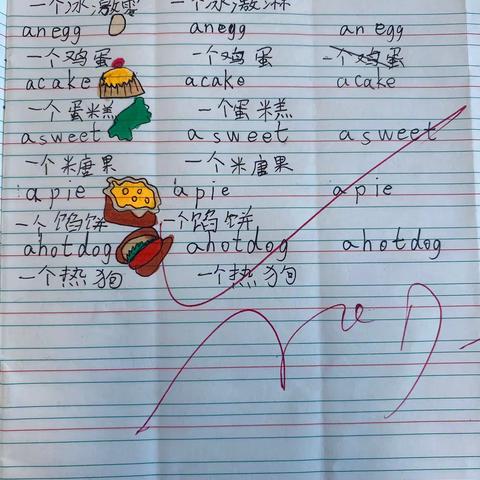 一个冰激零 一个冰激淋
an egg an egg an egg
一个鸡蛋 一个鸡蛋 一个鸡蛋
a cake a cake a cake
一个蛋糕 一个蛋糕
a sweet a sweet a sweet
一个米唐果 一个米唐果
a pie a pie a pie
一个馅饼 一个馅饼
a hotdog a hotdog a hotdog
一个热狗 一个热狗